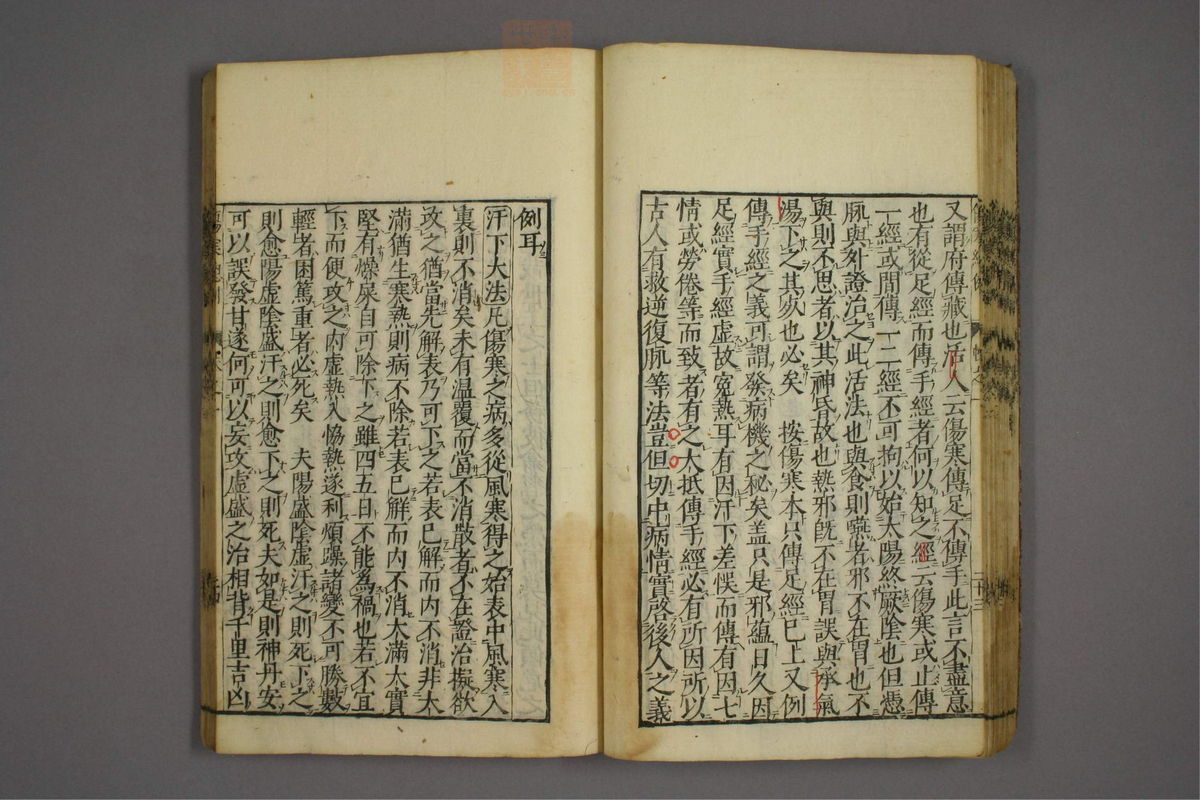 又謂府傳藏也活人云傷寒傳足不傳手此言不盡意
也有從足經而傳手經者何以知之經云傷寒或止傳
一經或間傳一二經不可拘以始太陽終厥陰也但憑
脈與外證治之此活法也與食則嚥者邪不在胃也不
與則不思者以其神昏故也熱邪旣不在胃誤與承氣
湯下之其歿也必矣　按傷寒本只傳足經已上又例
傳手經之義可謂發病機之秘矣盖只是邪蘊日久因
足經實手經虛故寃熱耳有因汗下差悞而傳有因七
情或勞倦等而致者有之大抵傳手經必有所因所以
古人有救逆復脈等法豈但切中病情實啓後人之義
例耳
汗下大法凡傷寒之病多從風寒得之始表中風寒入
裏則不消矣未有溫覆而當不消散者不在證治擬欲
攻之猶當先解表乃可下之若表已解而内不消非大
滿猶生寒熱則病不除若表已解而内不消大滿大實
堅有燥屎自可除下之雖四五日不能爲禍也若不宜
下而便攻之内虛熱入恊熱遂利煩躁諸變不可勝數
輕者困篤重者必死矣　夫陽盛陰虛汗之則死下之
則愈陽虛陰盛汗之則愈下之則死夫如是則神丹安
可以誤發甘遂何可以妄攻虛盛之治相背千里吉凶